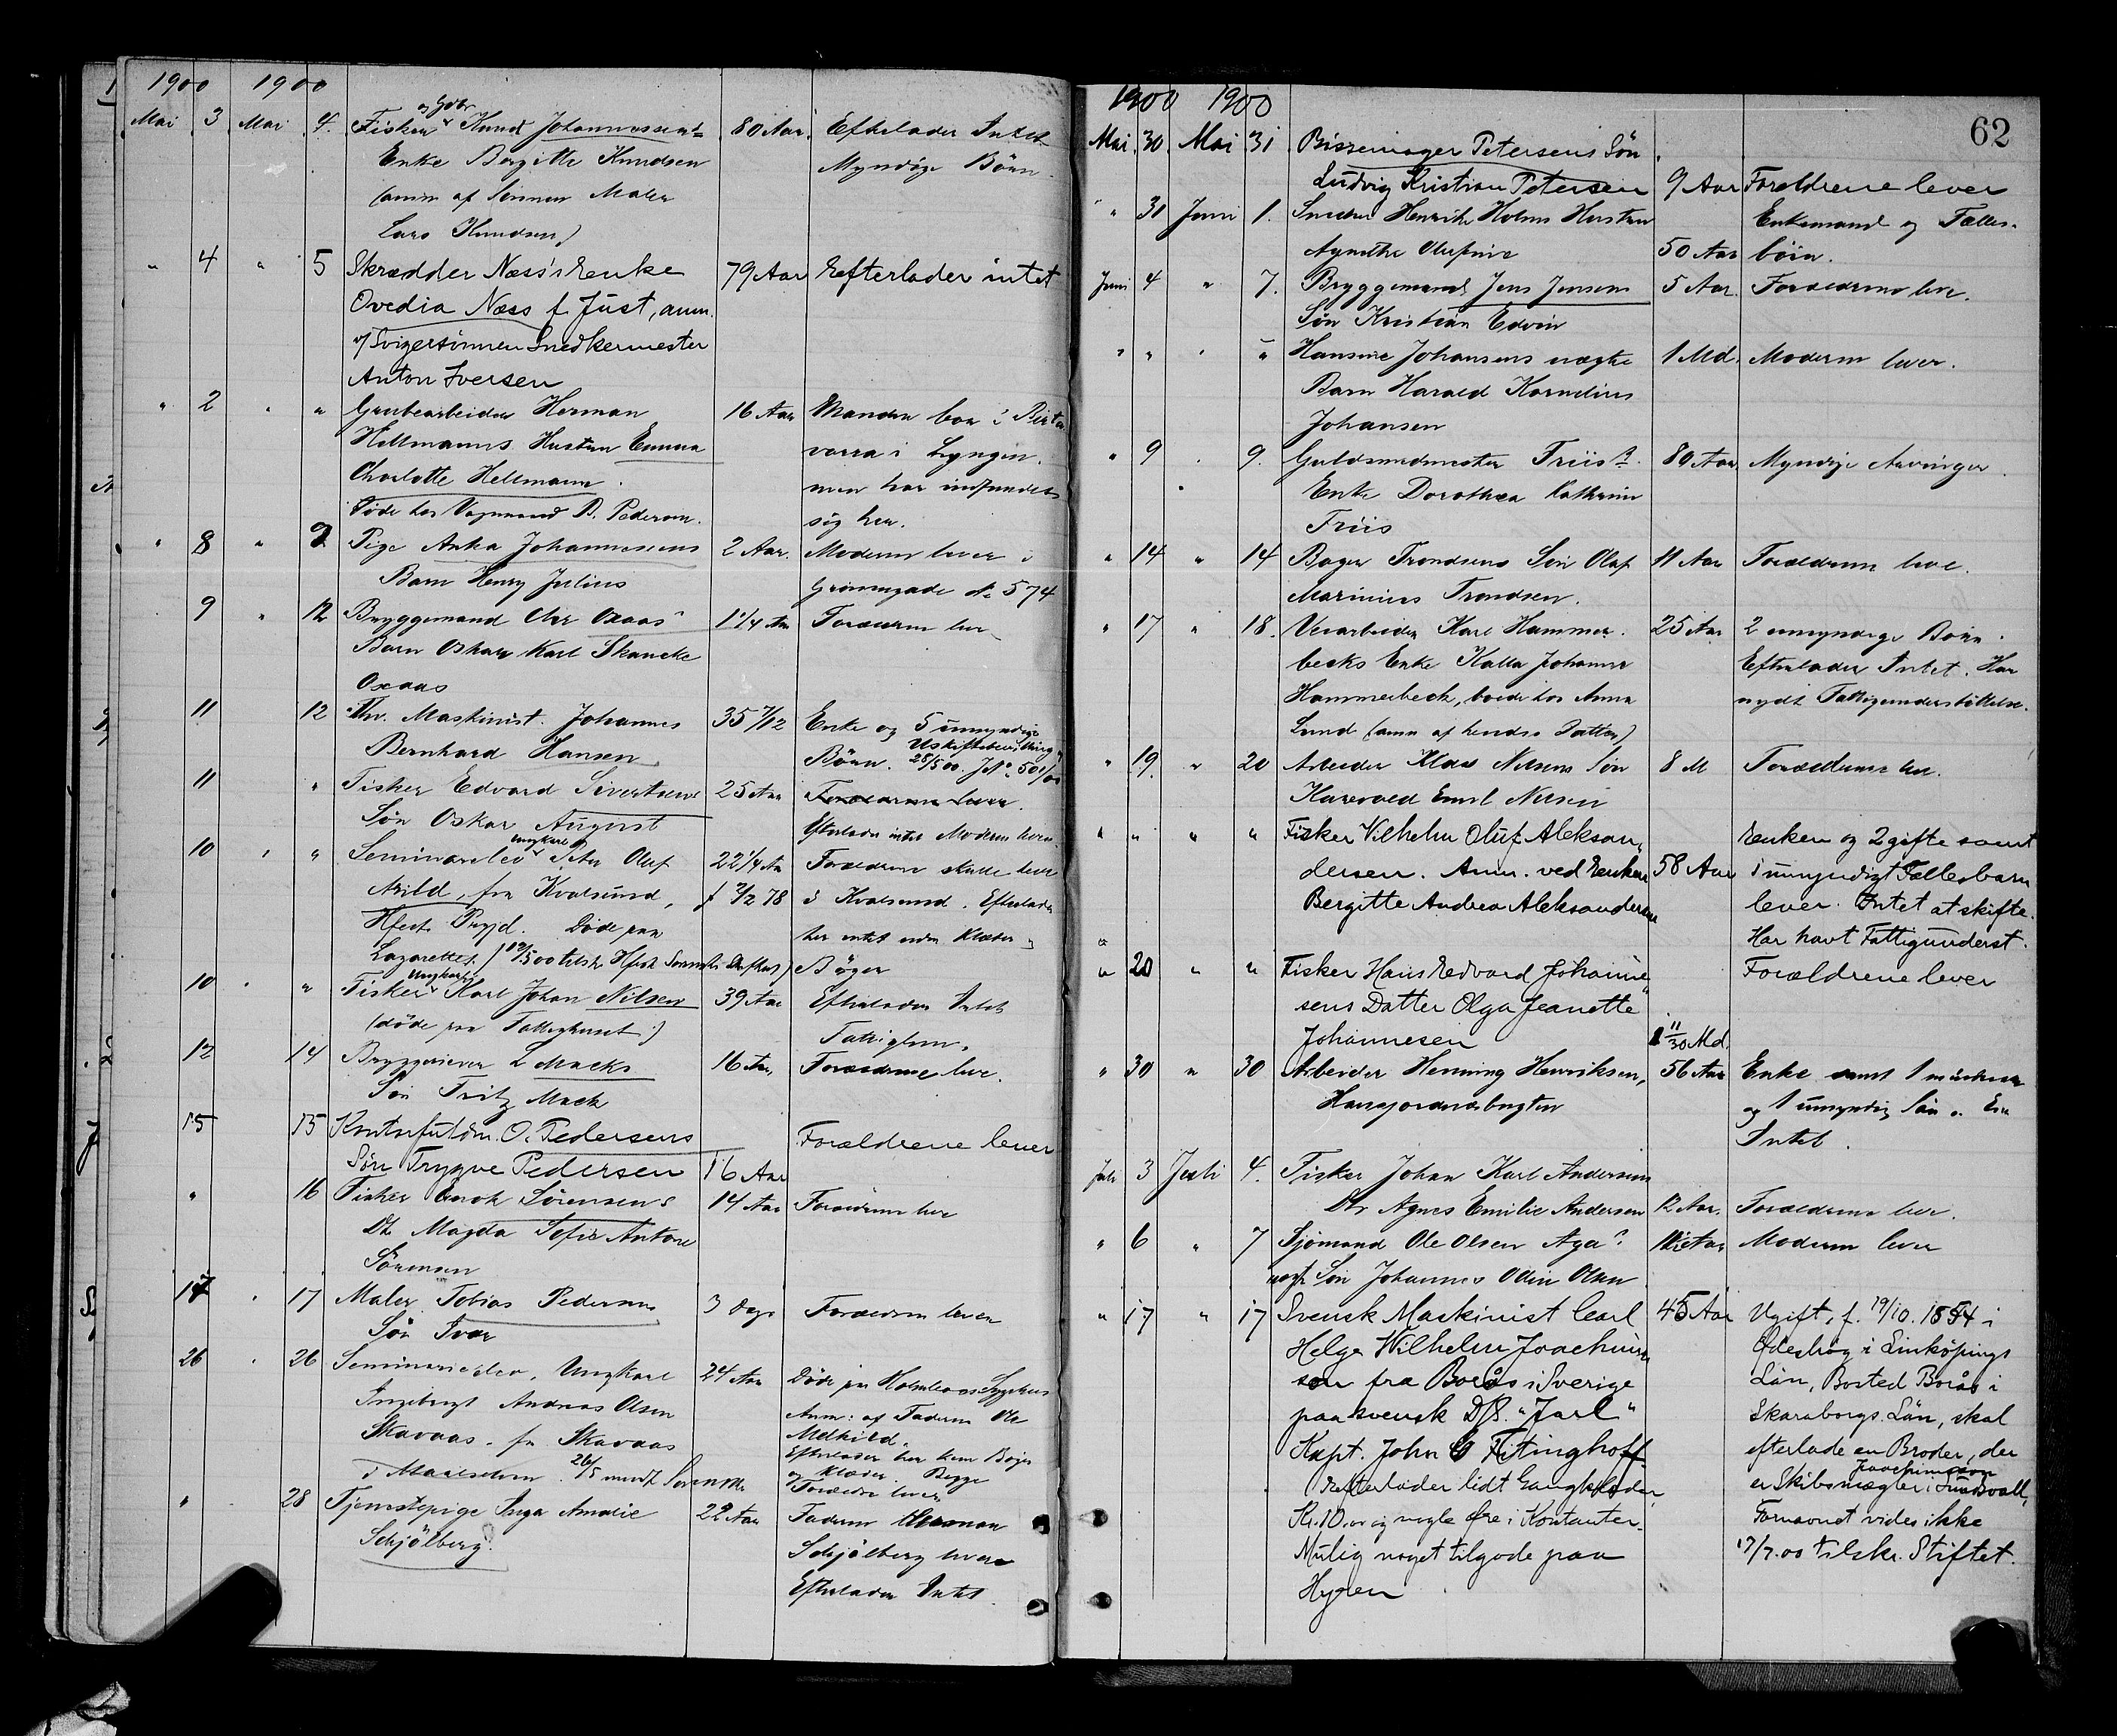 1900 1900
Mai 3 Mai 4. Fisker Knud Johannessens 80 Aar. Efterlader Intet
Enke Bergitte Knudsen Myndige Börn.
(anm af Sönnen Maler
Lars Knudsen)
" 4 " 5 Skrædder Næss's Enke 79 Aar Efterlader intet
Ovedia Næss f. Just, anm.
af Svigersønnen Snedkermester
Anton Iversen
" 2 " " Grubearbeider Herman 16 Aar Manden bor i
Hellmanns Hustru Emma varra i Lyngen.
Charlotte Hellmann. men har indfundet
Döde hos Vognmand P. Pedersen. sig her.
" 8 " 9 Pige Anka Johannesens 2 Aar. Moderen lever i
Barn Henry Julius Grönnegade No 574
9 " 12 Bryggemand Oxaas' 1 1/4 Aar Forældrene lever
Barn Oskar Karl Skancke
Oxaas
11 12 Maskinist Johannes 35 7/12 Enke og 5 umyndige
Bernhard Hansen Börn. Uskiftebevilling 28/5 00. JNo 501/00
11 " Fisker Edvard Sivertsens 25 Aar Forældrene lever.
Sön Oskar August Efterlader intet Moderen lever
10 " " Seminarelev ungkarl Peter Oluf 22 1/4 Aar Forældrene skulle leve
Arild, fra Kvalsund, i Kvalsund. Efterlader
Hfest. Prgd. Döde paa her intet uden Klæder og
Lazarettet. Böger
10 " " Fisker Ungkarl Karl Johan Nilsen 39 Aar Efterlader Intet
(döde paa Fattighuset) Fattiglem.
12 14 Bryggerieier L Macks 16 Aar Forældrene lever.
Sön Fritz Mack
15 15 O. Pedersens Forældrene lever
Søn Trygve Pedersen 16 Aar
" 16 Fisker Enok Sörensens 14 Aar Forældrene lever
Dtr Magda Sofie Antone
Sörensen
17 " 17 Maler Tobias Pedersens 3 Dage Forældrene lever
Sön Ivar
26 " 26 Seminarieelev, Ungkarl 24 Aar Döde paa Sygehus
Ingebrigt Andreas Olsen Anm: af Faderen Ole
Skavaas, fra Skavaas
i Maalselven. 26/5 Efterlader her kun Böger
og Klæder. Begge
Forældre lever
" 28 Tjenestepige Inga Amalie 22 Aar Faderen Herman
Schjölberg. Schjölberg lever
Efterlader Intet.
62
1900 1900
Mai 30 Mai 31 Petersens Sön
Ludvig Kristian Petersen 9 Aar Forældrene lever
" 31 Juni 1. Snedker Henrik Holms Hustru Enkemand og Fælles-
Agnethe Olufine 50 Aar börn.
Juni 4 " 7. Bryggemand Jens Jensens 5 Aar. Forældrene lever.
Sön Kristian Edvin
" " " " Hansine Johansens uægte 1 Md. Moderen lever.
Barn Harald Kornelius
Johansen
" 9 " 9. Guldsmedmester Friis's 80 Aar Myndige Arvinger.
Enke Dorothea Kathrine
Friis
" 14 " 14 Bager Trondsens Sön Olaf 11 Aar Forældrene lever.
Marinius Trondsen.
" 17 " 18. Veiarbeider Karl Hammer- 25 Aar 2 umyndige Börn.
becks Enke Kalla Johanna Efterlader Intet. Har
Hammerbeck, boede hos Anna nydt Fattigunderstöttelse.
Lund (anm af hendes Datter)
" 19 " 20 Arbeider Klaus Nilsens Sön 8 M Forældrene lever.
Emil Nilsen
" " " " Fisker Vilhelm Oluf Aleksan- Enken og 2 gifte samt
dersen. Anm. ved Enken 58 Aar 1 umyndigt Fællesbarn
Bergitte Andrea Aleksandersen lever. Intet at skifte.
Har havt Fattigunderst.
" 20 " " Fisker Hans Edvard Johanne- Forældrene lever
sens Datter Olga Jeanette
Johannesen 1 11/30 Md.
" 30 " 30 Arbeider Henning Henriksen, 56 Aar Enke samt 1
og 1 umyndig Sön.
Intet.
Juli 3 Juli 4. Fisker Johan Karl Andersens
Dtr Agnes Emilie Andersen 12 Aar. Forældrene lever.
" 6 " 7 Sjömand Ole Olsen Aga's Moderen lever
uægte Sön Johannes Odin Olsen
" 17 " 17 Svensk Maskinist Carl 45 Aar Ugift, f. 19/10. 1854 i
Helge Wilhelm Joachims- Ödeshög i Linköpings
son fra Borås i Sverige Län, Bosted Borås i
paa svensk D/S. "Jarl" Skaraborgs Län, skal
Kapt. John Fitinghoff. efterlade en Broder, der
(Efterlader lidt Gangklæder, er Skibsmægler Joachimsson i Sundsvall,
Kr. 10.00 og nogle Øre i Kontanter. Fornavnet vides ikke
Mulig noget tilgode paa 17/7.00 tilskr. Stiftet.
Hyren